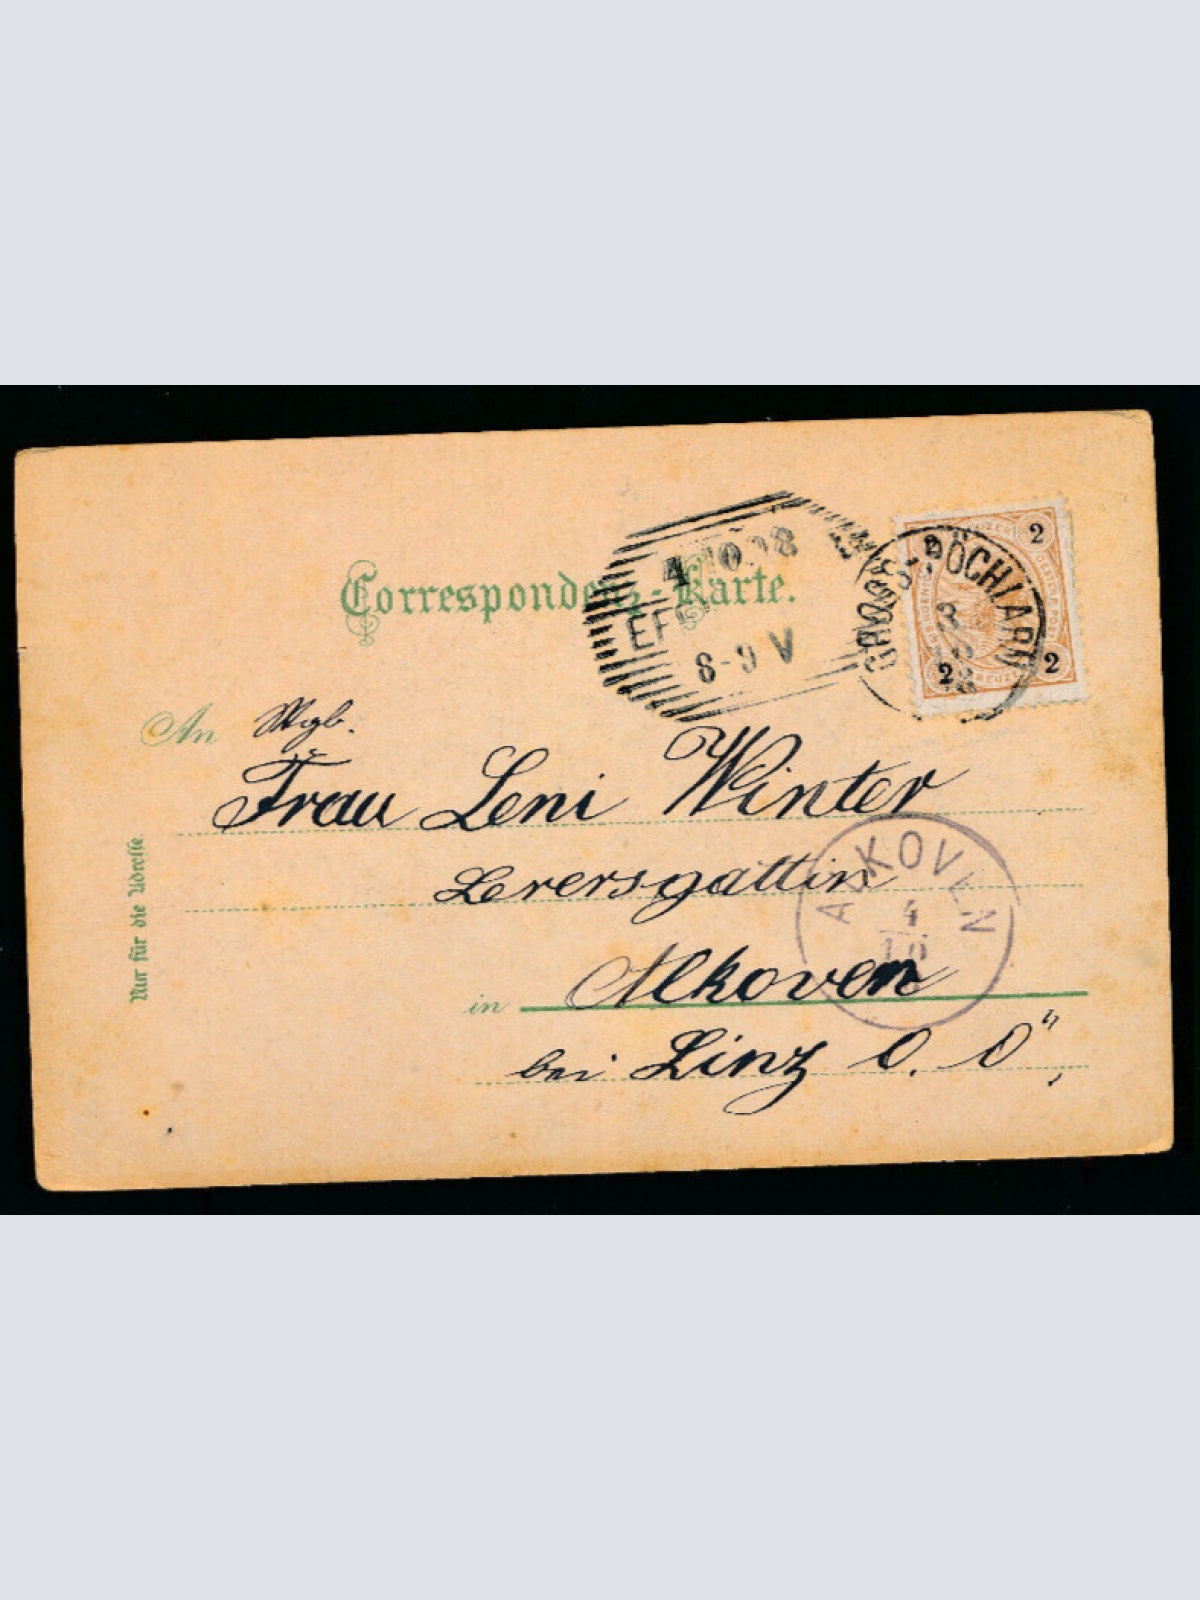 Correspondenz-Karte.
4 10 98
EF
8-9 V
GROSS-PÖCHLARN
3
10
98
2
2
2
2
An Wgb.
Frau Leni Winter
Lerersgattin
ALKOVEN
4
10
in Alkoven
bei Linz O. Ö.
Nur für die Adresse.